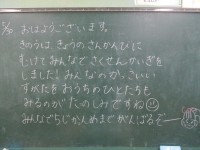 5/10 おはようございます。
きのうは、きょうのさんかんびに
むけてみんなでさくせんかいぎを
しました！みんなのかっこいい
すがたをおうちのひとたちも
みるのがたのしみですね
みんなで5じかんめまでがんばるぞー